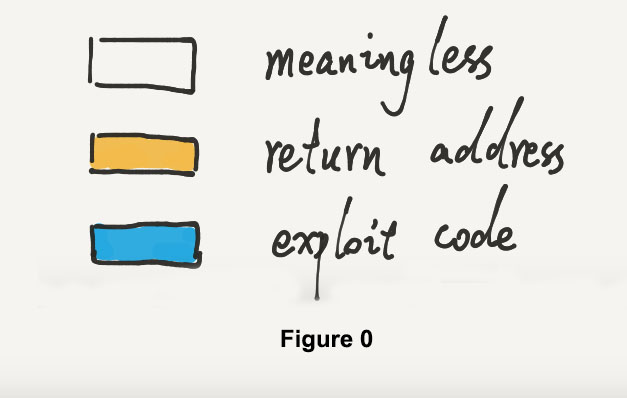 meaningless
return address
exploit code
Figure 0